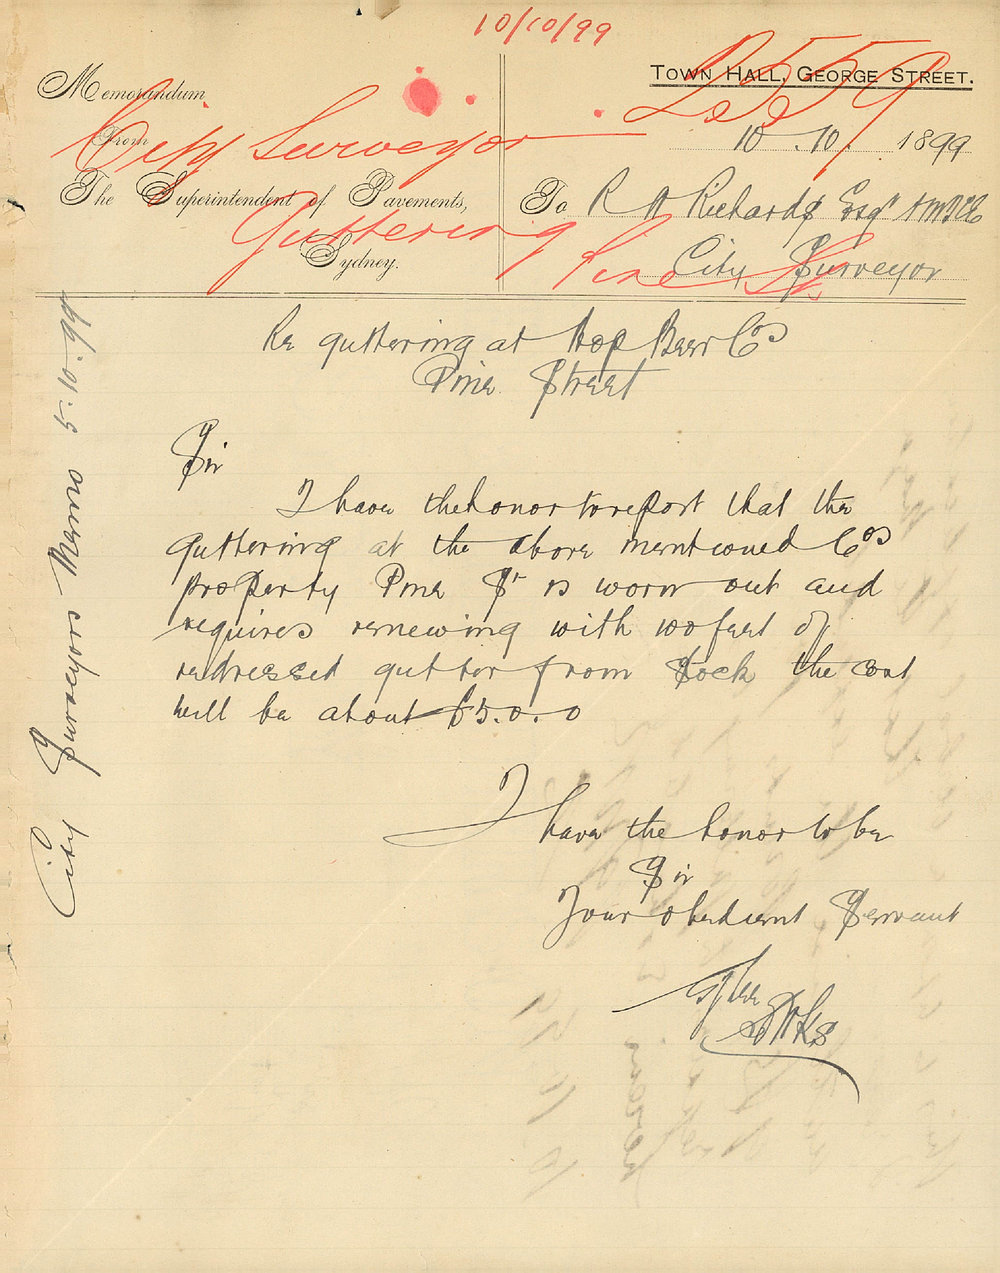 10/10/99
Memorandum
From
The Superintendent of Pavements,
Sydney.
City Surveyor
Guttering Pine St
Town Hall, George Street.
2559
10.10. 1899
To R W Richards Esqr AMICE
City Surveyor
Re guttering at Hop Beer Cos
Pine Street
City Surveyors Memo 5.10.99
Sir
I have the honor to report that the
guttering at the above mentioned Cos
property Pine St is worn out and
requires renewing with 100 feet of
redressed gutter from Stock the cost
will be about £5.0.0
I have the honor to be
Sir
Your obedient Servant